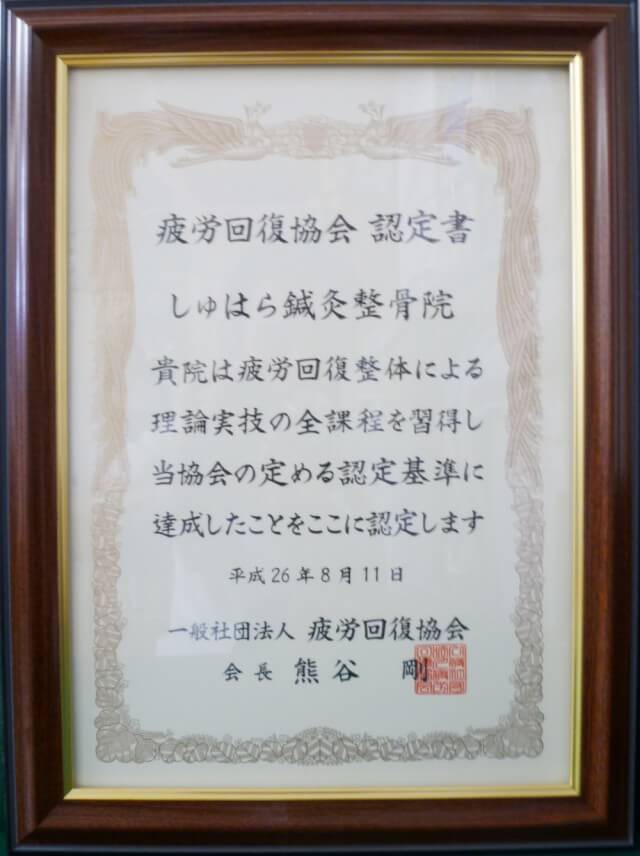 疲労回復協会 認定書
しゅはら鍼灸整骨院
貴院は疲労回復整体による
理論実技の全課程を習得し
当協会の定める認定基準に
達成したことをここに認定します
平成26年8月11日
一般社団法人 疲労回復協会
会長 熊谷 剛